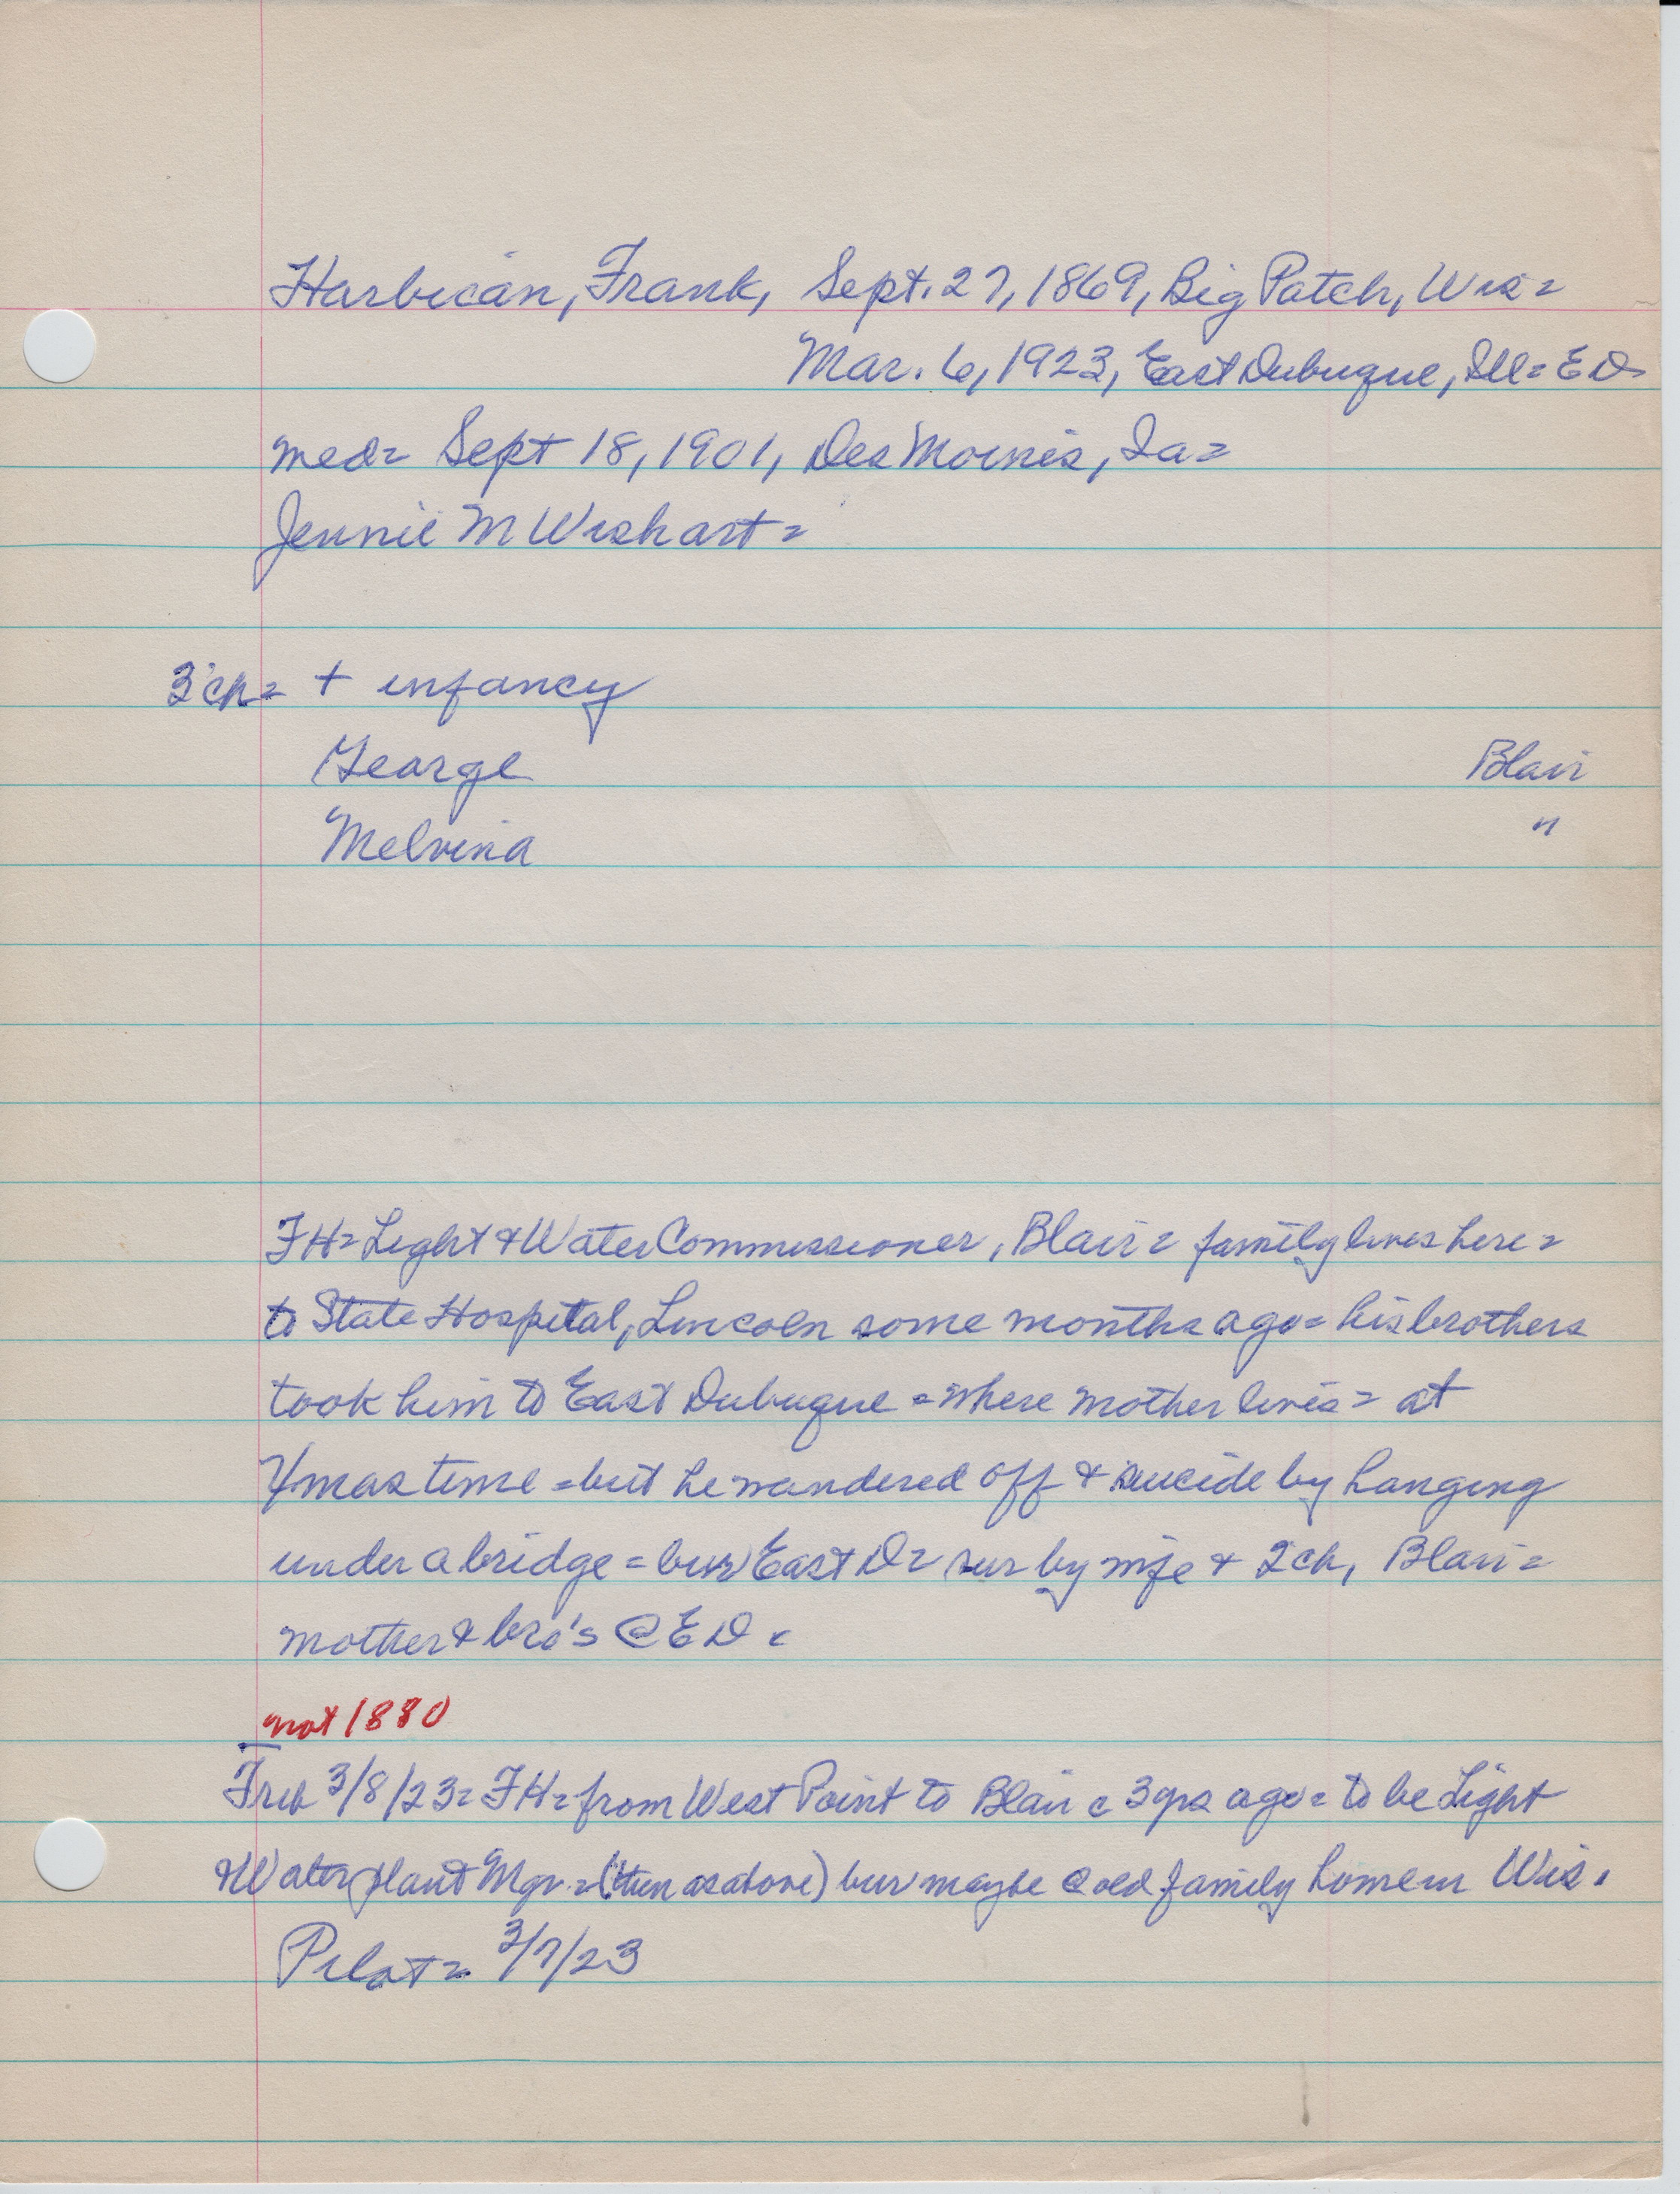 Harbican, Frank, Sept. 27, 1869, Big Patch, Wis =
Mar. 6, 1923, East Dubuque, Ill = E D
med = Sept 18, 1901, Des Moines, Ia =
Jennie M Wishart =
3 ch = + infancy
George Blair
Melvina "
FH = Light & Water Commissioner, Blair = family lives here =
to State Hospital, Lincoln some months ago = his brothers
took him to East Dubuque = where mother lives = at
Xmas time = but he wandered off & suicide by hanging
under a bridge = bur East D = sur by wife & 2 ch, Blair =
mother & bro's @ E D =
not 1880
Trib 3/8/23 = FH = from West Point to Blair c 3 yrs ago = to be Light
& Water plant Mgr. = (then as above) bur maybe @ old family home in Wis.
Pilot = 3/7/23